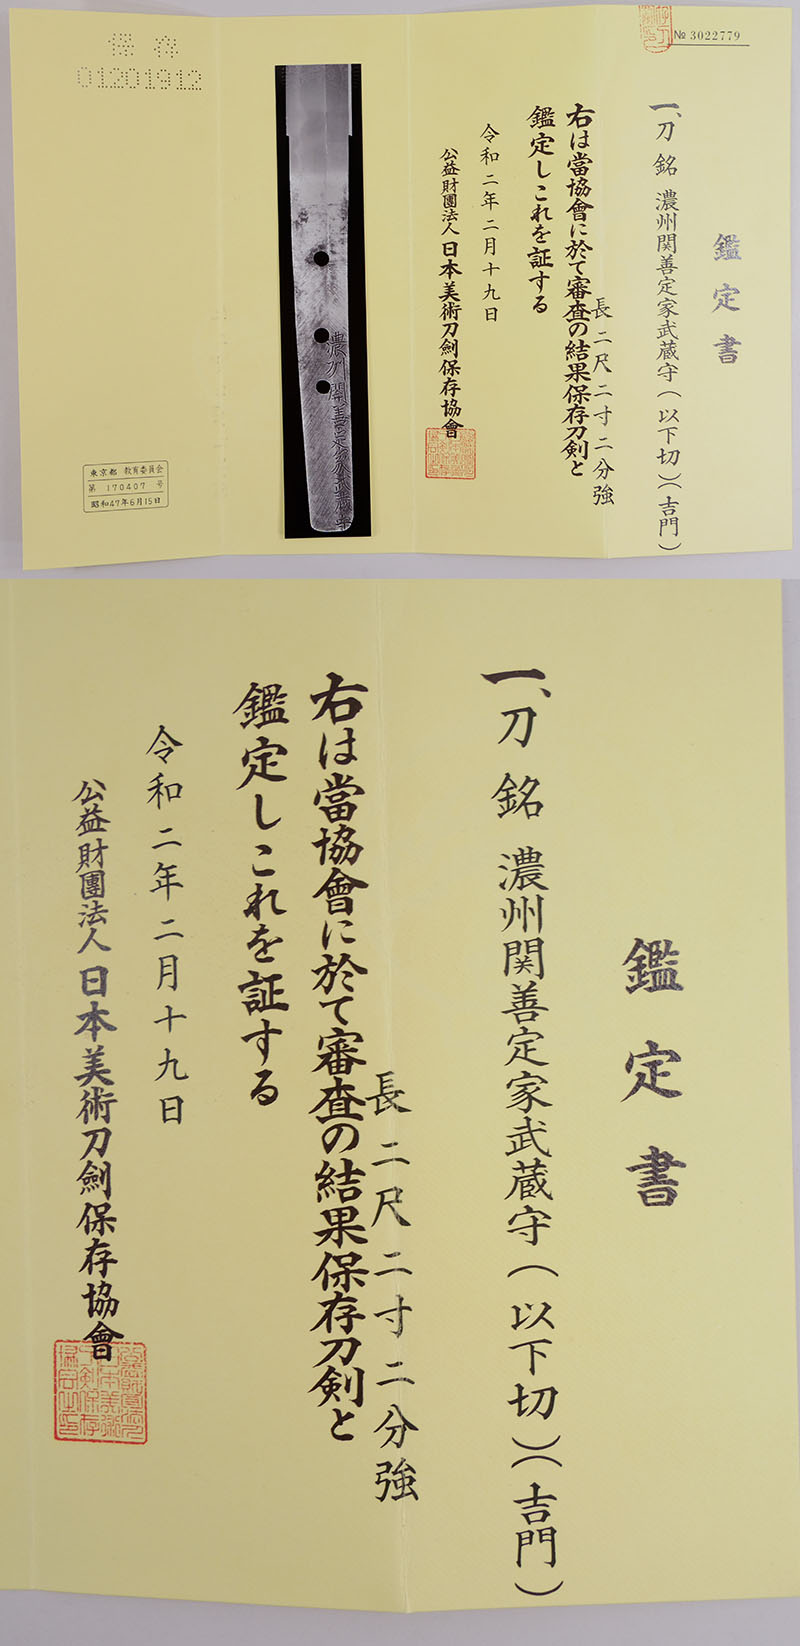 保存
01201912
東京都 教育委員会
第 170407 号
昭和47年6月15日
濃州関善定家武蔵守
№ 3022779
鑑定書
一、刀 銘 濃州関善定家武蔵守（以下切）（吉門）
長二尺二寸二分強
右は當協會に於て審査の結果保存刀剣と
鑑定しこれを証する
令和二年二月十九日
公益財團法人日本美術刀劍保存協會
鑑定書
一、刀 銘 濃州関善定家武蔵守（以下切）（吉門）
長二尺二寸二分強
右は當協會に於て審査の結果保存刀剣と
鑑定しこれを証する
令和二年二月十九日
公益財團法人日本美術刀劍保存協會